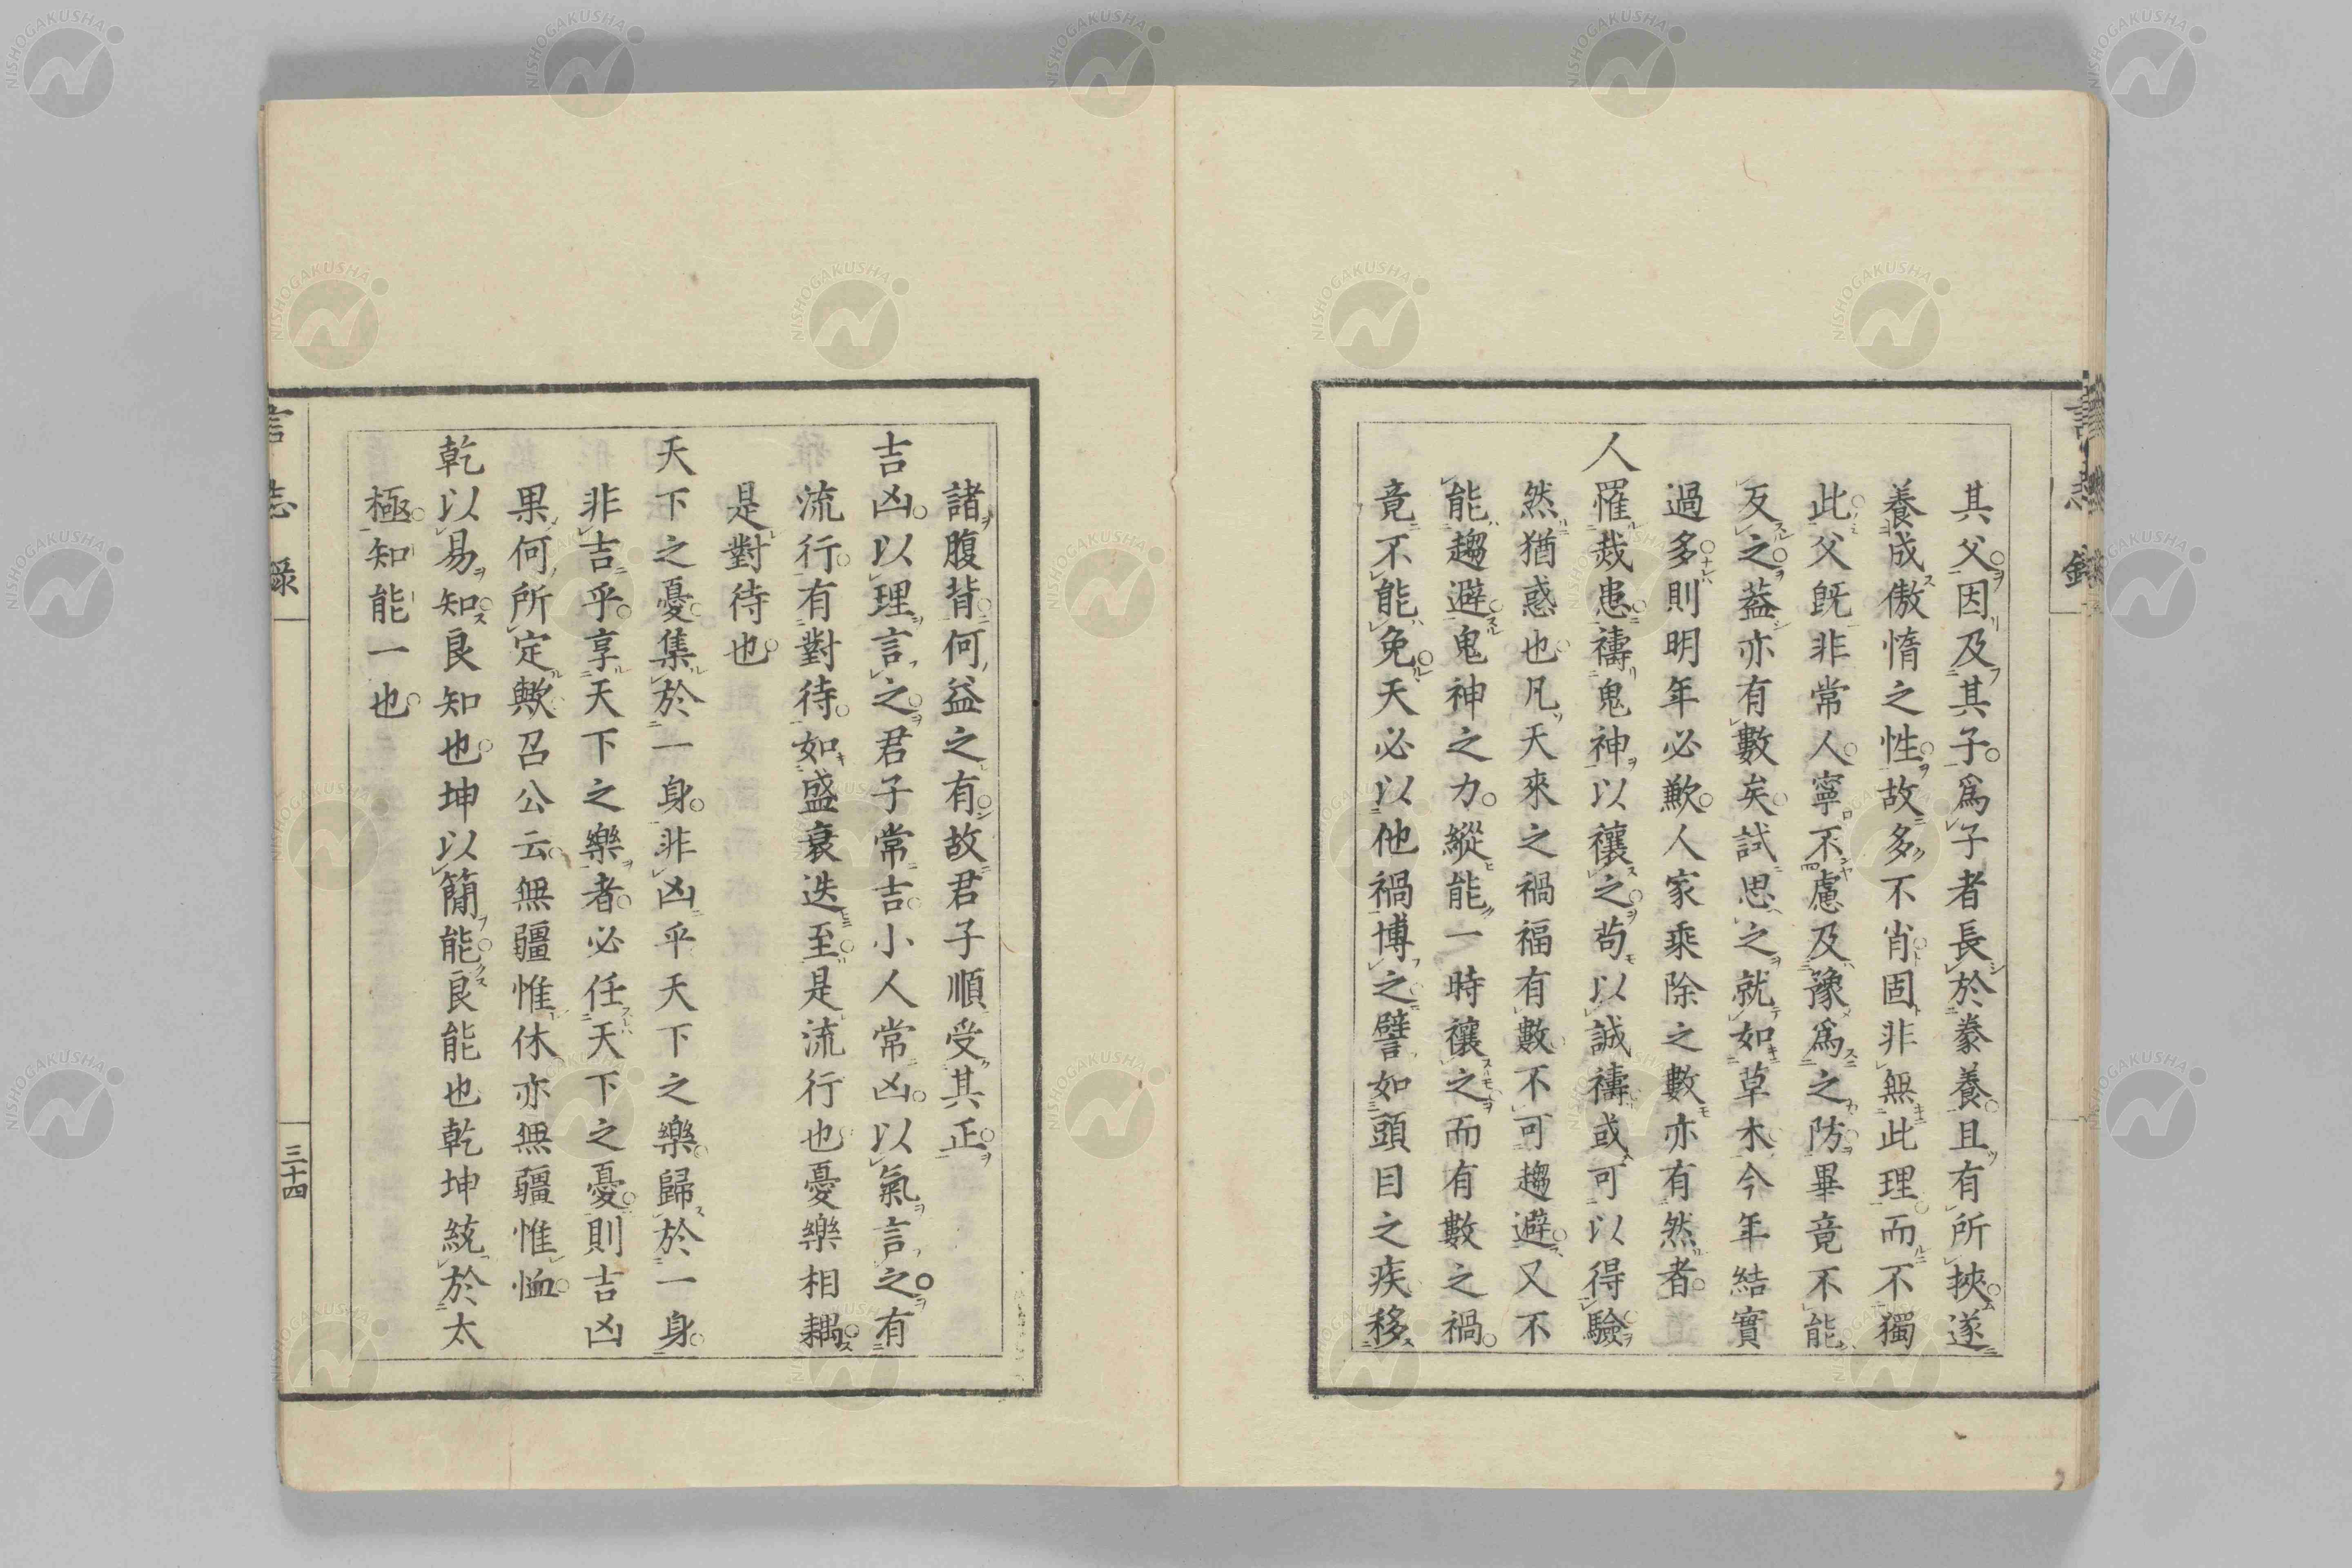 其父因及其子爲子者長於豢養且有所挾遂
養成傲惰之性故多不肖固非無此理而不獨
此父既非常人寧不慮及豫爲之防畢竟不能
反之葢亦有數矣試思之就如草木今年結實
過多則明年必歉人家乘除之數亦有然者
人罹烖患禱鬼神以禳之苟以誠禱或可以得驗
然猶惑也凡天來之禍福有數不可趨避又不
能趨避鬼神之力縱能一時禳之而有數之禍
竟不能免天必以他禍博之譬如頭目之疾移
諸腹背何益之有故君子順受其正
吉凶以理言之君子常吉小人常凶以氣言之有
流行有對待如盛衰迭至是流行也憂樂相耦
是對待也
天下之憂集於一身非凶乎天下之樂歸於一身
非吉乎享天下之樂者必任天下之憂則吉凶
果何所定歟召公云無疆惟休亦無疆惟恤
乾以易知良知也坤以簡能良能也乾坤統於太
極知能一也
言志録
三十四
NISHOGAKUSHA